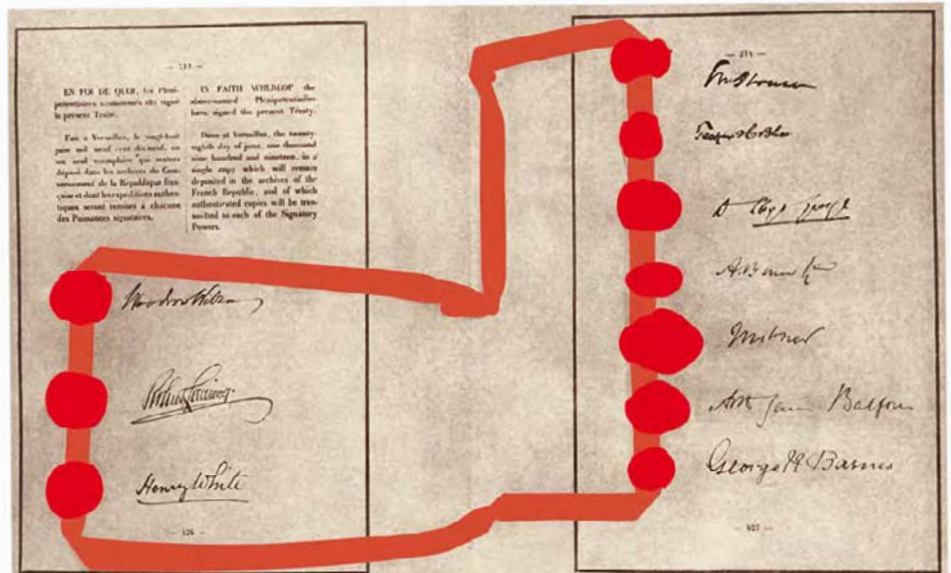 EN FOI DE QUOI, les Pléni-
potentiaires susnommés ont signé
le présent Traité.
Fait à Versailles, le vingt-huit
juin mil neuf cent dix-neuf, en
un seul exemplaire qui restera
déposé dans les archives du Gou-
vernement de la République fran-
çaise et dont les expéditions authen-
tiques seront remises à chacune
des Puissances signataires.
IN FAITH WHEREOF the
above-named Plenipotentiaries
have signed the present Treaty.
Done at Versailles, the twenty-
eighth day of june, one thousand
nine hundred and nineteen, in a
single copy which will remain
deposited in the archives of the
French Republic, and of which
authenticated copies will be trans-
mitted to each of the Signatory
Powers.
Woodrow Wilson
Robert Lansing
Henry White
D Lloyd George
A. Bonar Law
Milner
Arthur James Balfour
George N Barnes